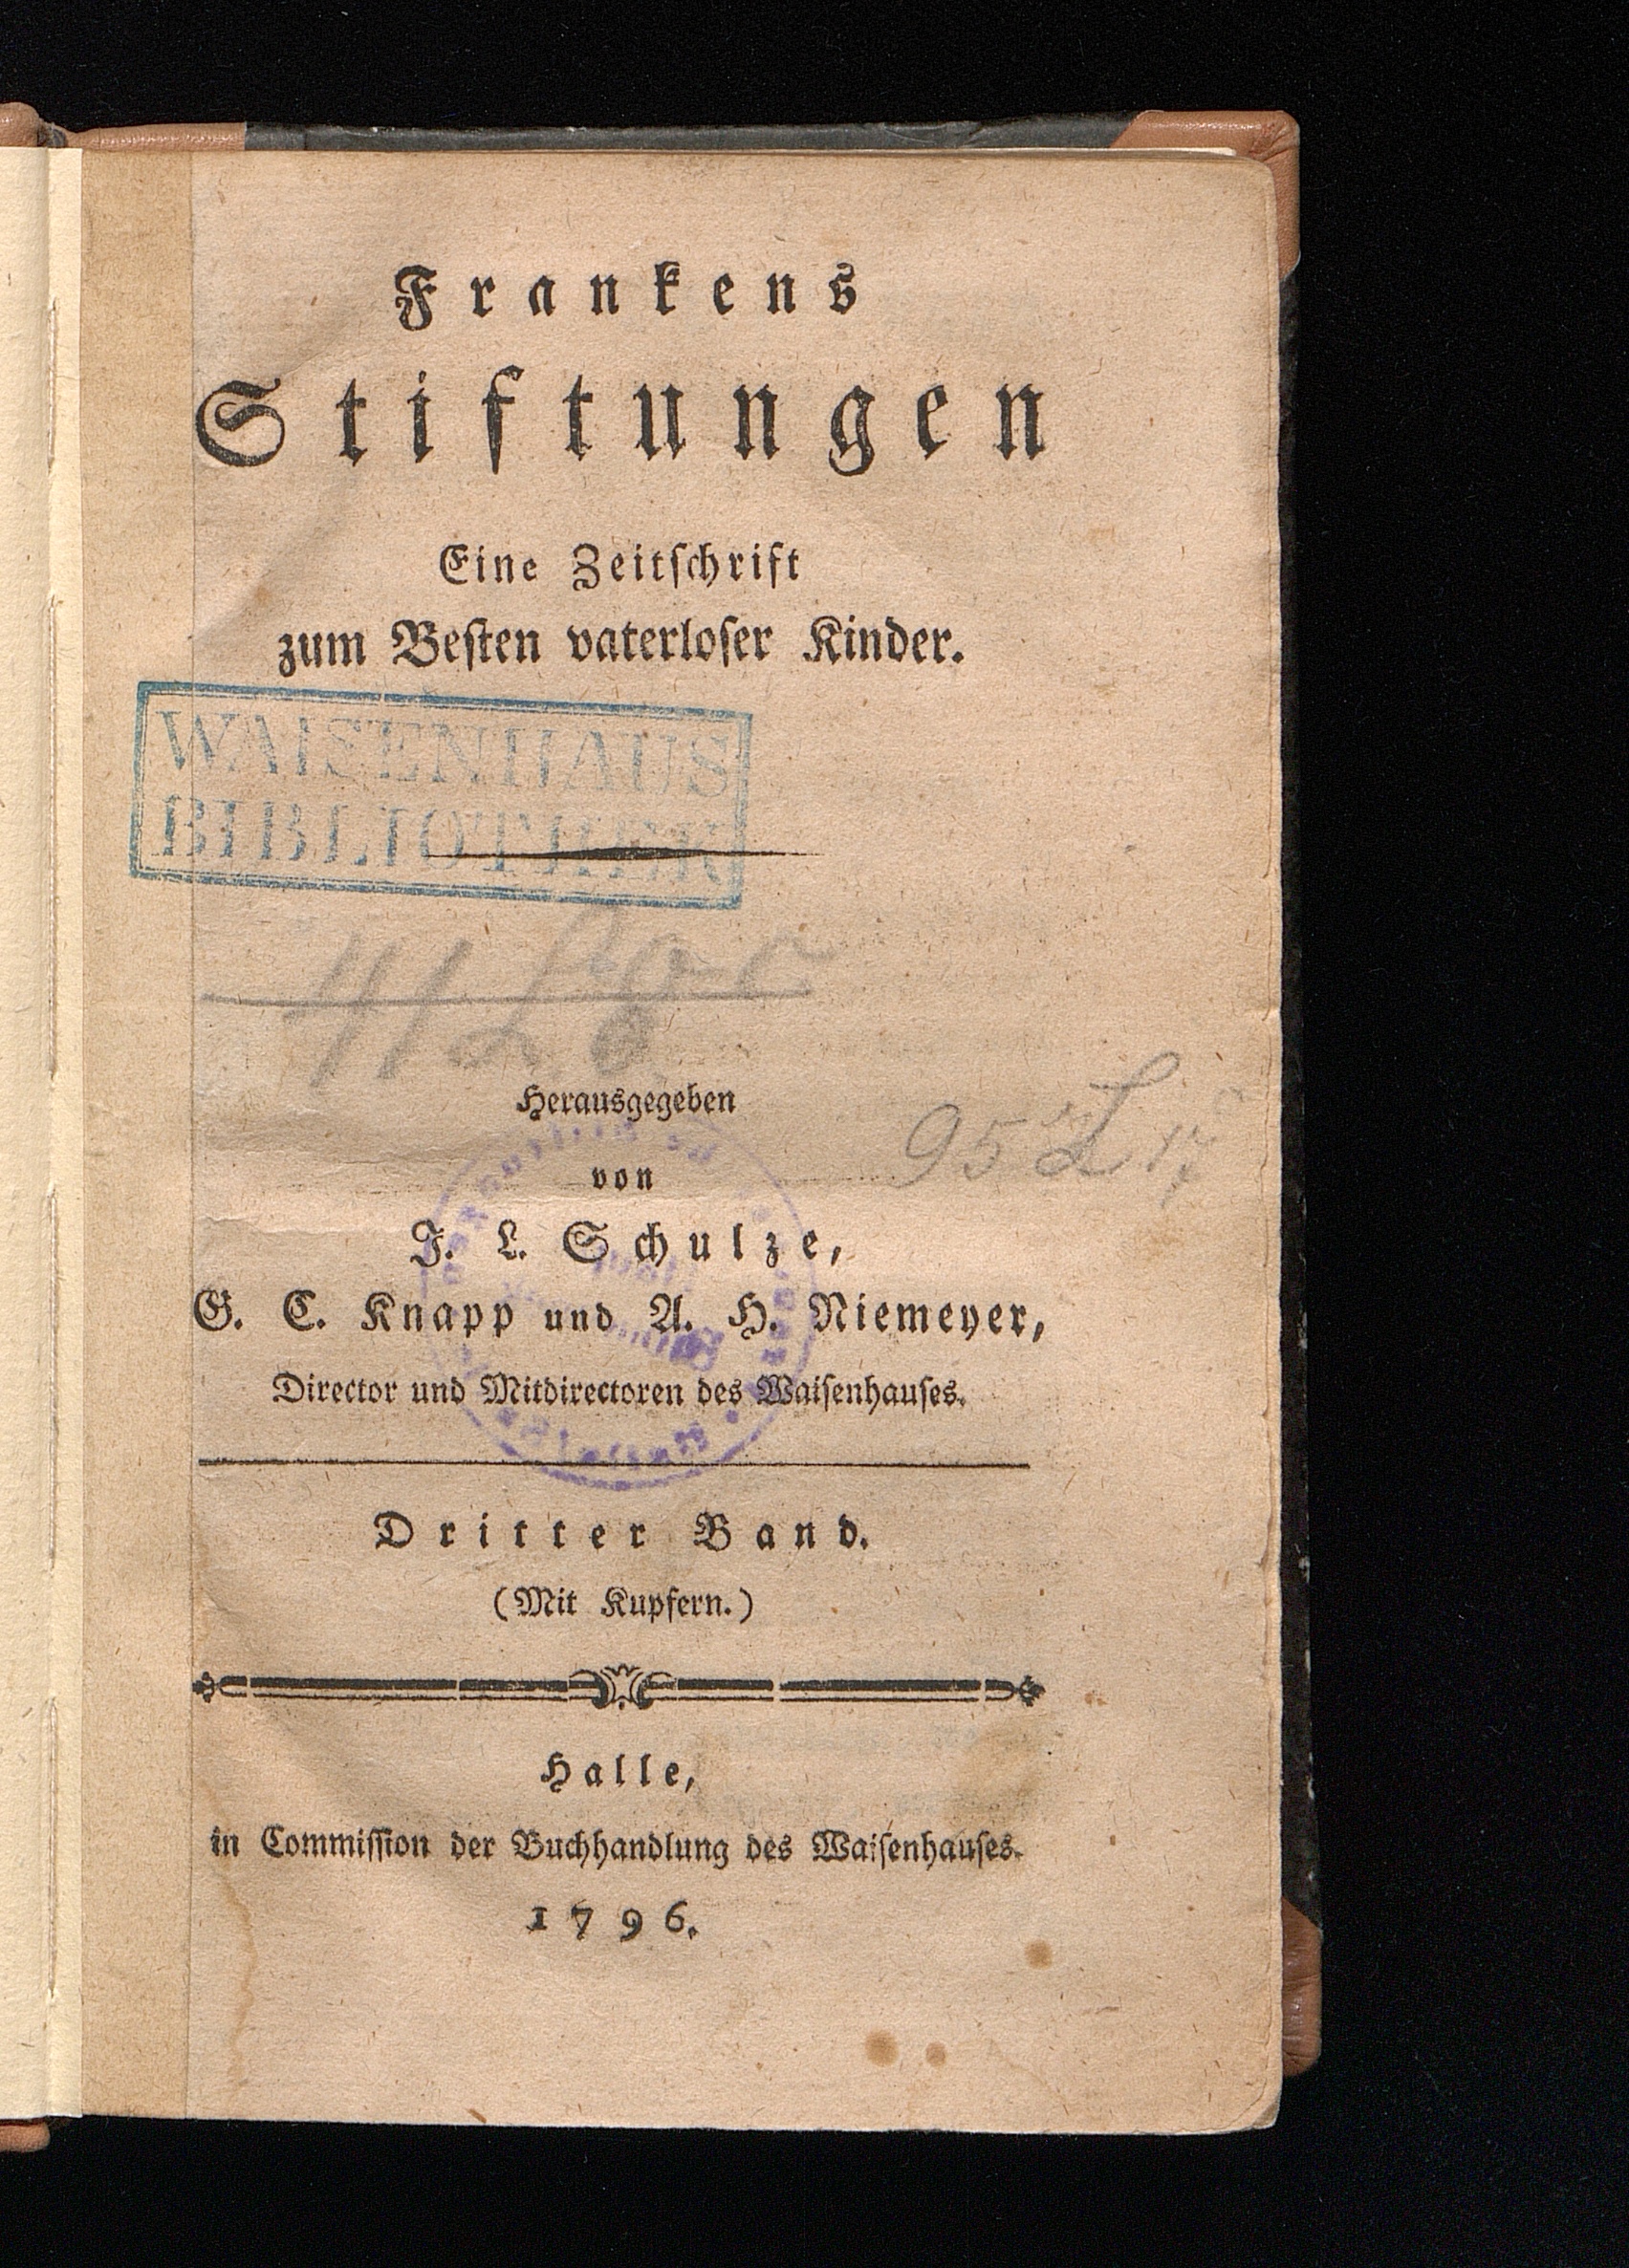 Frankens
Stiftungen
Eine Zeitschrift
zum Besten vaterloser Kinder.
WAISENHAUS
BIBLIOTHEK
Herausgegeben
95 L 17
von
J. L. Schulze,
G. C. Knapp und A. H. Niemeyer,
Director und Mitdirectoren des Waisenhauses.
Dritter Band.
(Mit Kupfern.)
Halle,
in Commission der Buchhandlung des Waisenhauses.
1796.